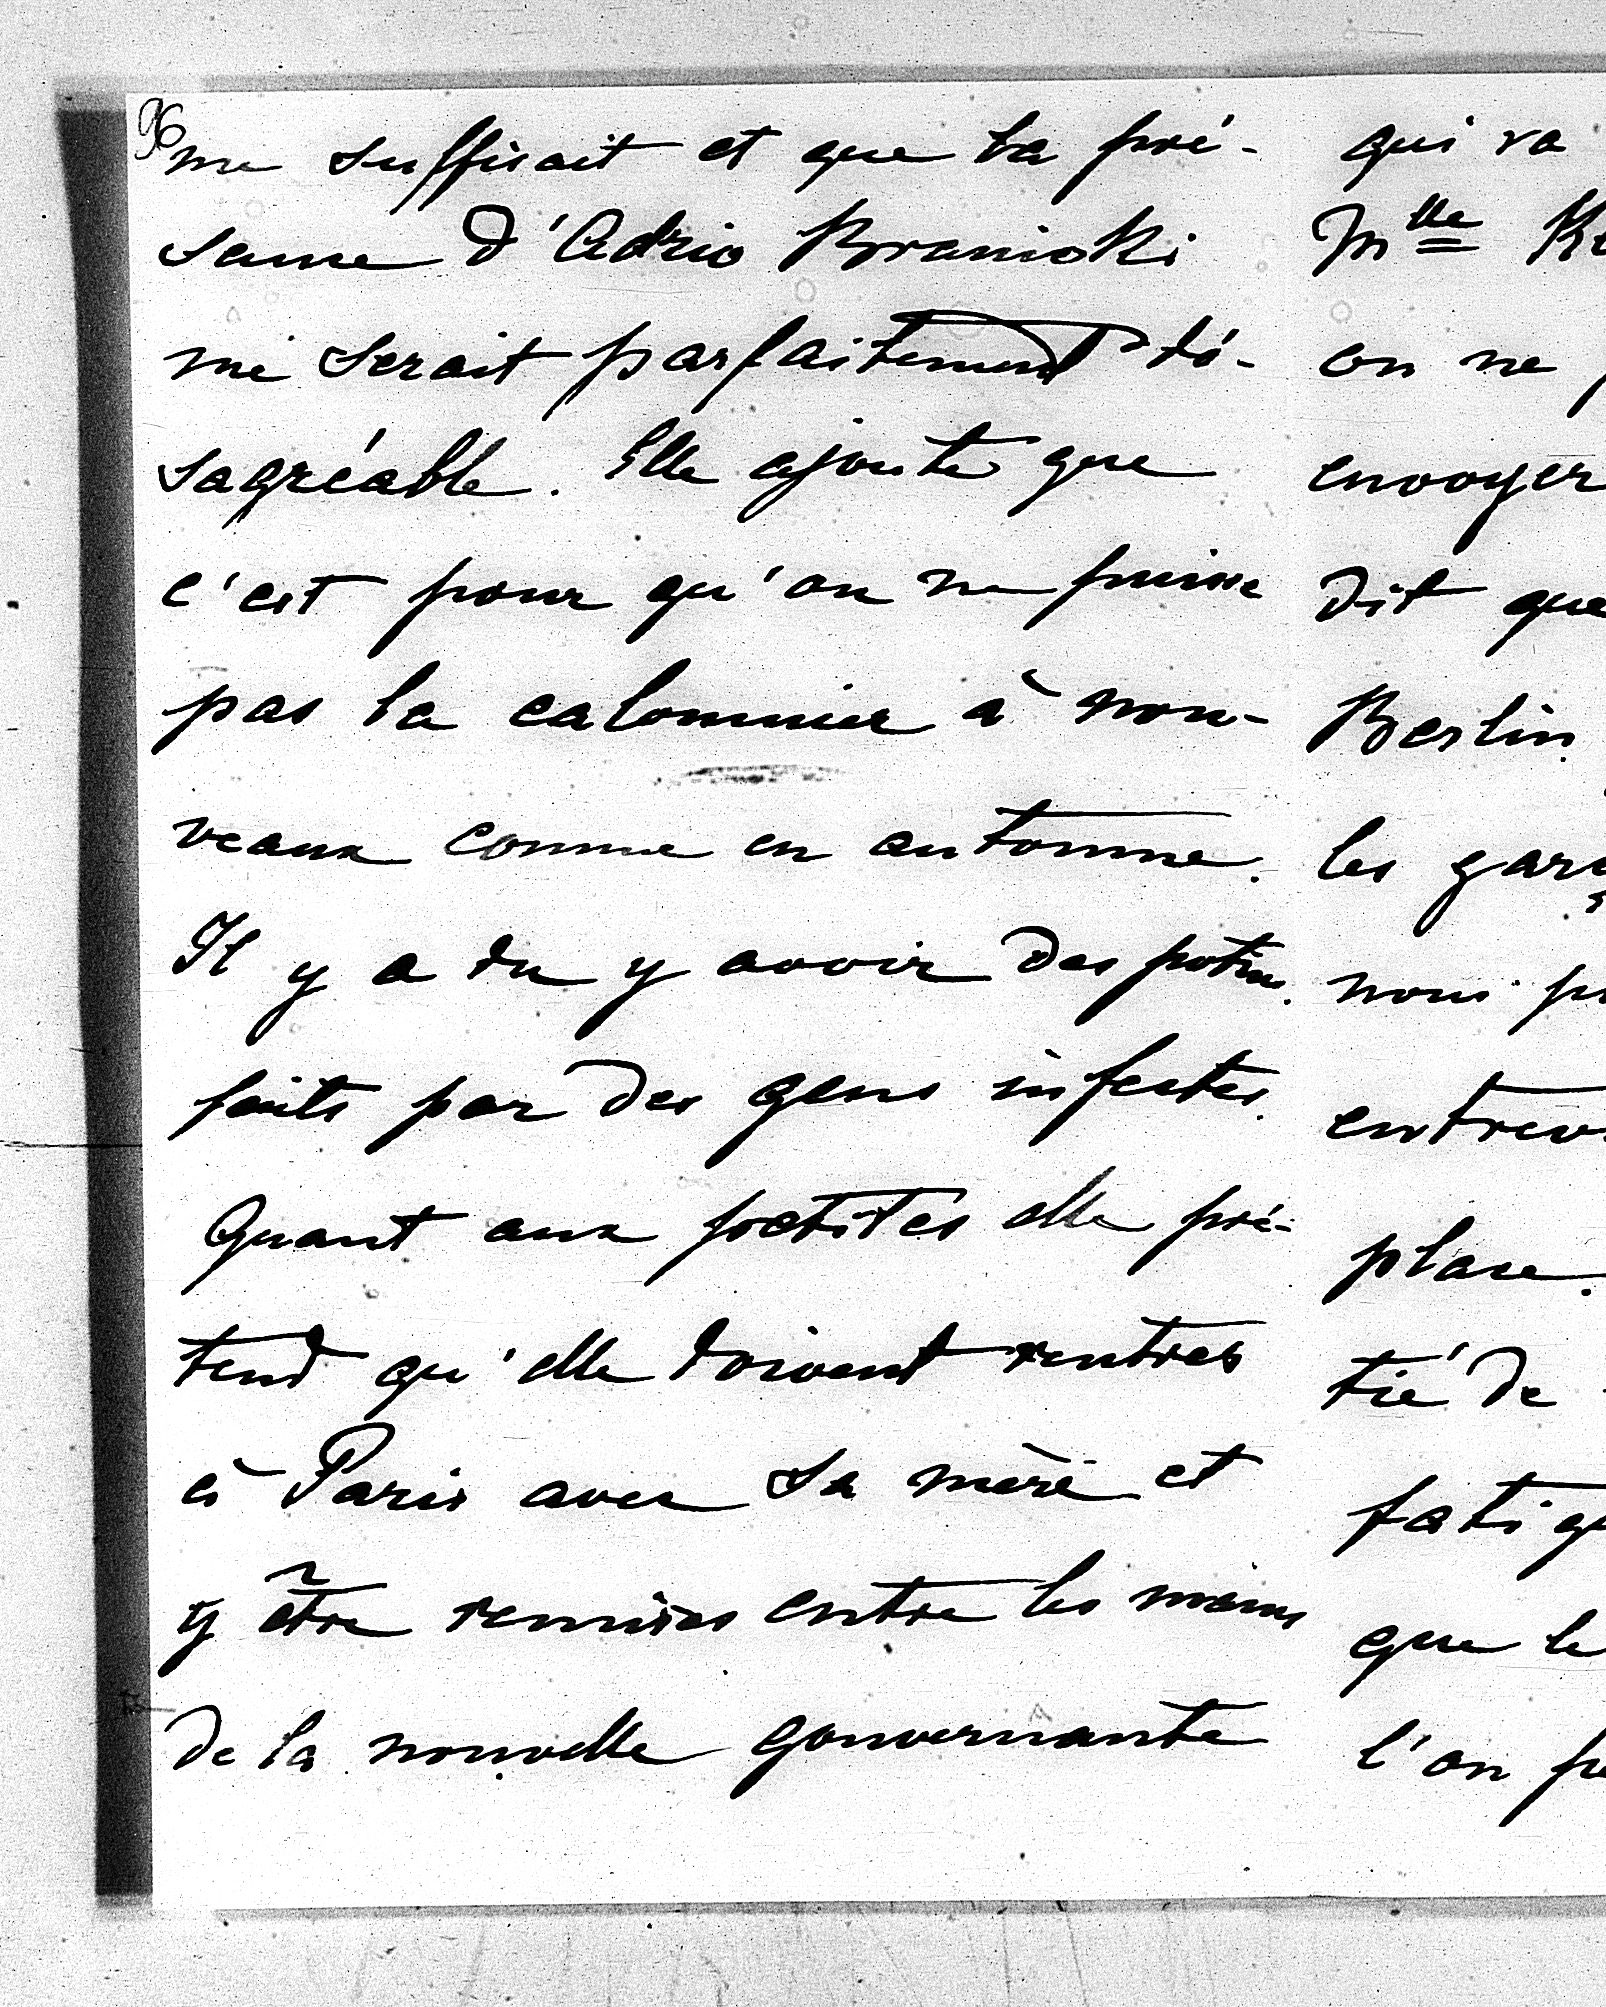 96
me suffisait et que la pré-
sence d'Adzio Branicki
me serait parfaitement dé-
sagréable. Elle ajoute que
c'est pour qu'on ne puisse
pas la calomnier à nou-
veaux comme en automne.
Il y a du y avoir des potins
faits par des gens infectes.
Quant aux petites elle pré-
tend qu'elle doivent rentrer
à Paris avec sa mère et
y être remises entre les mains
de la nouvelle gouvernante
qui va
Mlle
on ne
envoyer
dit que
Berlin
les
nous
place.
tié de
que le
l'on